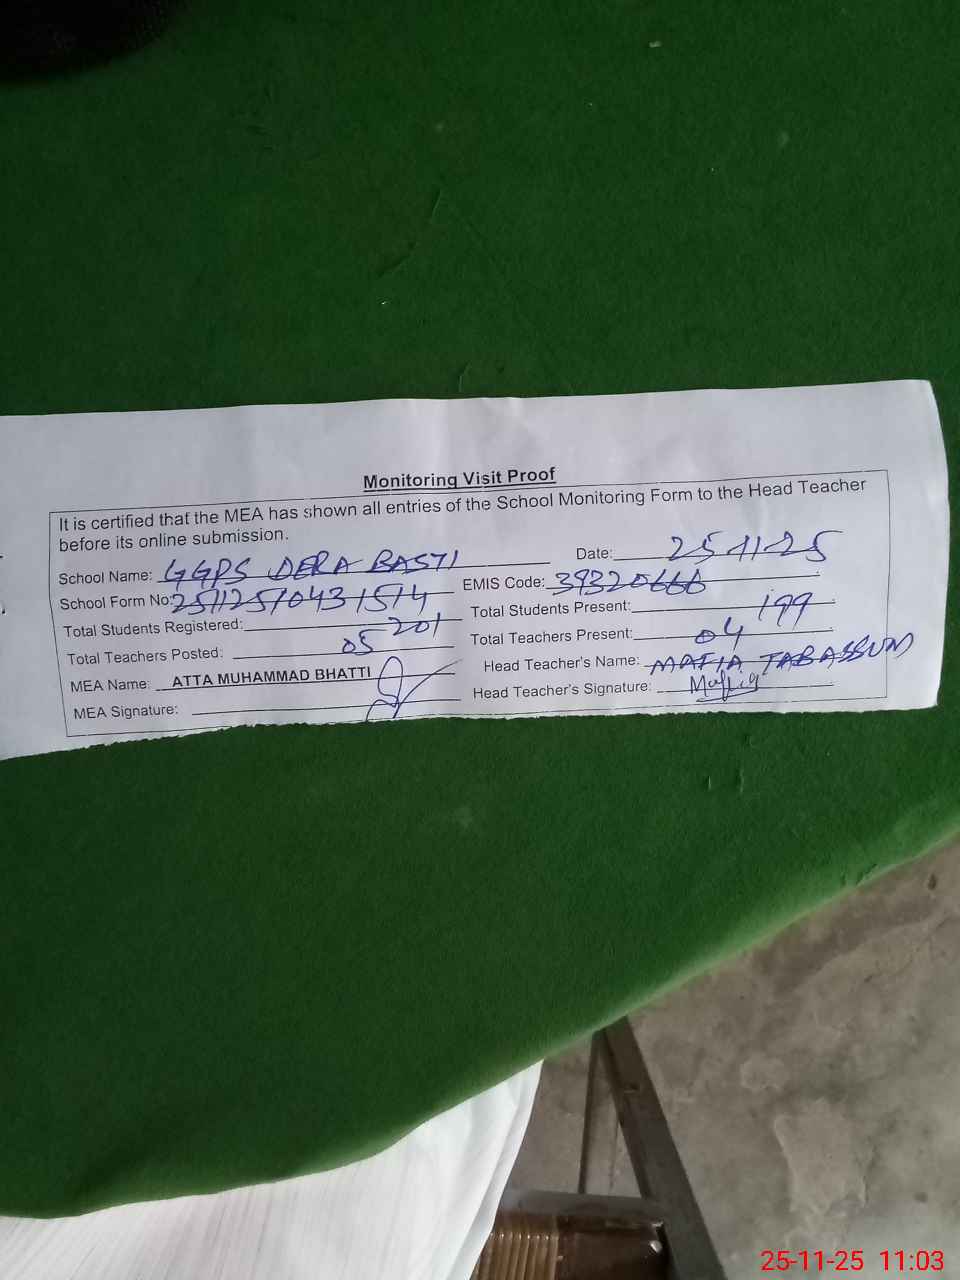 Monitoring Visit Proof
It is certified that the MEA has shown all entries of the School Monitoring Form to the Head Teacher
before its online submission.
School Name: GGPS DERA BASTI Date: 25-11-25
School Form No: 25112510431514 EMIS Code: 39320666
Total Students Registered: 201 Total Students Present: 199
Total Teachers Posted: 05 Total Teachers Present: 04
MEA Name: ATTA MUHAMMAD BHATTI Head Teacher's Name: MAFIA TABASSUM
MEA Signature: Head Teacher's Signature:
25-11-25 11:03